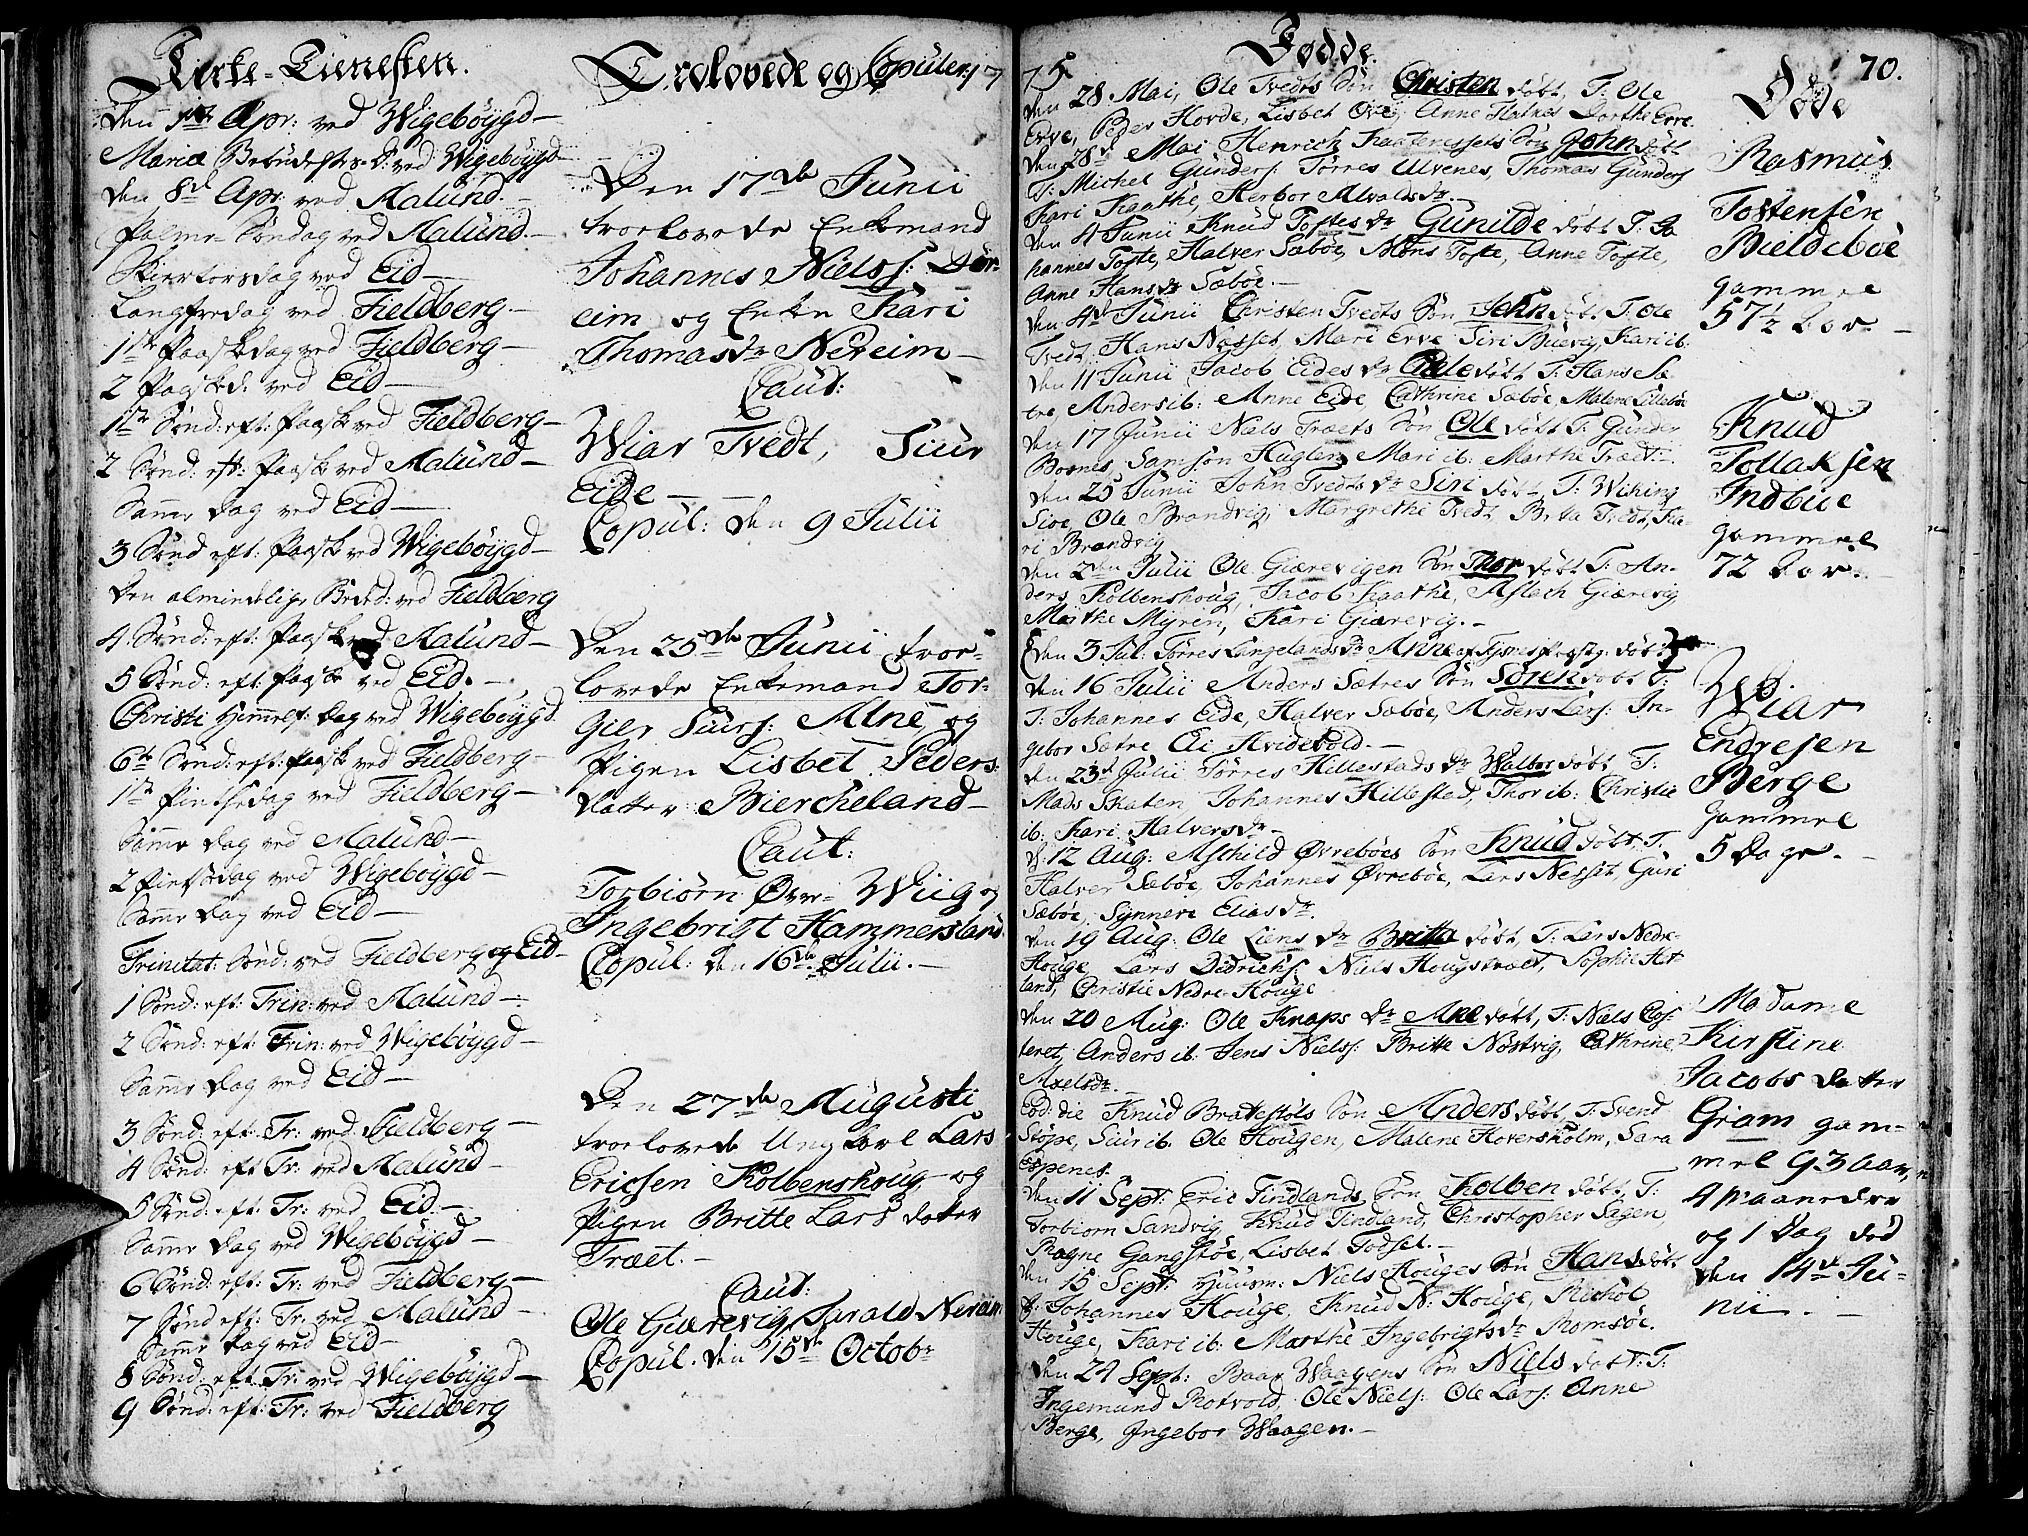 Kirke-Tienesten.
Den 1ste Apr: ved Wigebøygd
Mariæ Bebudelses D: ved Wigebøygd
den 8de Apr: ved Malund.
Palme-Søndag ved Malund.
Skiertorsdag ved Eid
Langfredag ved Fieldberg.
1ste Paaskedag ved Fieldberg
2 Paasked: ved Eid
1ste Sønd: eft: Paaske ved Fieldberg
2 Sønd: eft: Paaske ved Malund
Samme Dag ved Eid
3 Sønd eft: Paaske ved Wigebøygd
Den almindelige Beded: ved Fieldberg
4. Sønd: eft: Paaske ved Malund
5 Sønd: eft: Paaske ved Eid.
Christi Himmelf: Dag ved Wigebøygd
6te Sønd: eft: Paaske ved Fieldberg
1ste Pintsedag ved Fieldberg
Samme Dag ved Malund
2 Pintsedag ved Wigebøygd
Samme Dag ved Eid
Trinitat: Sønd: ved Fieldberg og Eid
1 Sønd: eft: Trin: ved Malund
2 Sønd: eft: Trin: ved Wigebøygd
Samme Dag ved Eid
3 Sønd: eft: Tr: ved Fieldberg
4 Sønd: eft Tr: ved Malund
5 Sønd: eft: Tr: ved Eid.
Samme Dag ved Wigebøygd
6 Sønd: eft: Tr: ved Fieldberg
7 Sønd eft: Tr: ved Malund
Samme Dag ved Eid
8 Sønd: eft: Tr: ved Wigebøygd
9 Sønd: eft: Tr: ved Fieldberg
Trolovede og Copuler: 17
Den 17de Junii
trolovede Enkemand
Johannes Nielss:
eim og Enke Kari
Thomasdr Nereim
Caut:
Wiar Tvedt, Siur
Eide
Copul: den 9 Julii
Den 25de Junii tro-
lovede Enkemand Tor-
gier Siurs: Alne og
Pigen Lisbet Peders
datter Biercheland
Caut:
Torbiørn Øvre Wiig og
Ingebrigt Hammersland
Copul: den 16de Julii.
Den 27de Augusti
trolovede Ungkarl Lars
Ericsen Kolbenshoug og
Pigen Britte Lars dater
Træet.
Caut:
Ole Giærevig, Tarald Nereim
Copul. den 15de Octobr
75.
Fødde.
den 28 Mai, Ole Tvedts Søn Christen døbt, T: Ole
Erve, Peder Hovde, Lisbet Anne Dorthe Erve.
den 28de Mai Henrich Søn John døbt
T: Michel Gunders: Tørres Ulvenes, Thomas Gunders
Kari Kaathe, Herbor Alvaldsdr.
den 4 Junii Knud Toftes dr Gunilde døbt T: Jo
hannes Tofte, Halver Sæbøe, Møns Tofte, Anne Tofte,
Anne Hansdr Sæbøe.
den 4de Junii Christen Tvedts Søn John døbt T: Ole
Tvedt, Hans Nesset, Mari Erve Siri Buevig, Kari ib.
den 11 Junii Jacob Eides dr døbt T: Hans Sæ
tre, Anders ib: Anne Eide, Cathrine Sæbøe, Malene Lillebøe
den 17 Junii Niels Træets Søn Ole døbt T: Gunder
Bognes, Samson Huglen, Mari ib: Marthe Træet.
den 25 Junii John Tvedts dr Siri døbt T: Wiking
Sioe, Ole Brandvig, Margrethe Tvedt, Brita Tvedt, Ka
ri Brandvig
den 2den Julii Ole Giærevigen Søn Thor døbt T: An-
ders Kolbenshoug, Jacob Kaathe, Aslach Giærevig
Marthe Myren, Kari Giærevig.
den 3 Jul: Tørres Langelands dr Anne døbt
den 16 Julii Anders Sætres Søn Søren døbt T:
T: Johannes Eide, Halver Sæbøe, Anders Lars: In-
gebor Sætre Eli Hvidevold.
den 23de Julii Tørres Hillestads dr Walbor døbt T:
Mads Skaten, Johannes Hillestad, Thor ib: Christie
ib: Kari Halversdr
d: 12 Aug: Aschild Øvrebøes Søn Knud døbt, T:
Halver Sæbøe, Johannes Øvrebøe, Lars Nesset, Guri
Sæbøe, Synneve Eliasdr
den 19 Aug: Ole Liens dr Britta døbt, T: Lars Nedre-
Houge, Lars Didrichs: Niels Hougstvæet, Sophie Ket
land, Christie Nedre-Houge
den 20 Aug: Ole Knaps dr Ane døbt, T: Niels Clos-
teret, Anders ib: Jens Niels: Britte Nøstvig, Cathrine
Axelsdr
Eod: die Knud Bratestøls Søn Anders døbt, T: Svend
Støpe, Siur ib: Ole Hougen, Malene Hoversholm, Sara
Espenes.
den 11 Sept: Eric Tindlands Søn Kolben døbt, T:
Torbiorn Sandvig, Knud Tindland, Christopher Sagen,
Ragne Gangstøe, Lisbet Todsel.
den 15 Sept: Huusm: Niels Houges Søn Hans døbt
T: Johannes Houge, Knud N: Houge, Michel
Houge, Kari ib: Marthe Ingebrigtsdr Romsøe.
den 24 Sept: Baar Waagens Søn Niels døbt: T:
Ingemund Rotvold, Ole Niels: Ole Lars: Anne
Berge, Ingebor Waagen.
70.
Døde
Rasmus
Tostensen
Bieldebøe
gammel
57½ Aar.
Knud
Tollaksen
Indbue
gammel
72 Aar.
Wiar
Endresen
Berge
gammel
5 Dage.
Madame
Kirstine
Jacobs datter
Gram gam-
mel 93 Aar,
4 Maaneder
og 1 Dag død
den 14de Ju-
nii.